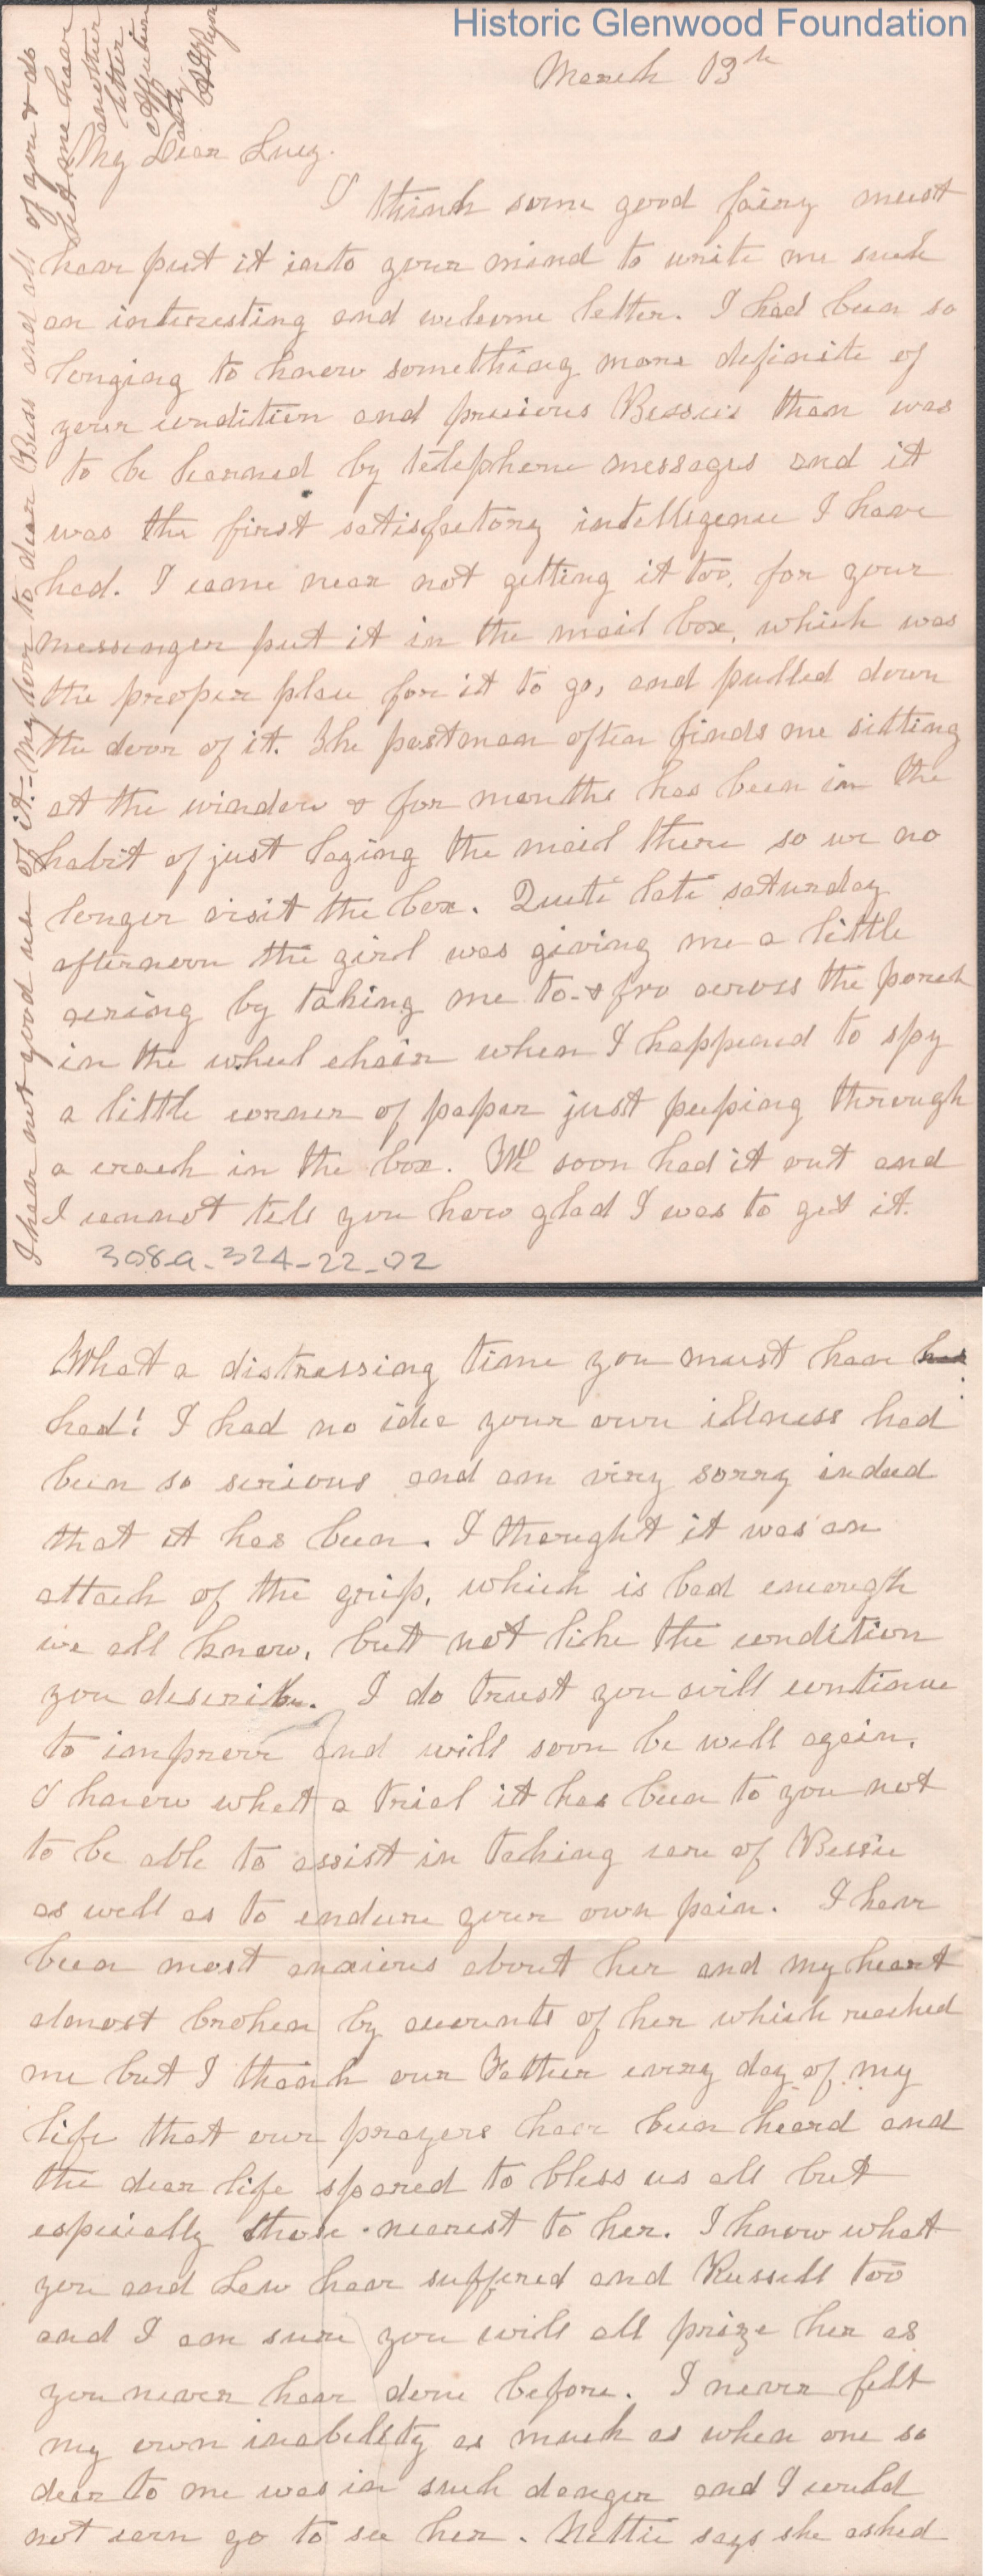 Historic Glenwood Foundation
March 13th
My Dear Lucy.
I think some good fairy must
have put it into your mind to write me such
an interesting and welcome letter. I had been so
longing to know something more definite of
your condition and precious Bessie's than was
to be learned by telephone messages and it
was the first satisfactory intelligence I have
had. I came near not getting it too, for your
messenger put it in the mail box, which was
the proper place for it to go, and pulled down
the door of it. The postman often finds me sitting
at the window & for months has been in the
habit of just laying the mail there so we no
longer visit the box. Quite late saturday
afternoon the girl was giving me a little
airing by taking me to- & fro across the porch
in the wheel chair when I happened to spy
a little corner of paper just peeping through
a crack in the box. We soon had it out and
I cannot tell you how glad I was to get it.
308a-324-22-02
I hear out good use of it. = My love to dear Bess and all of you & do
let me hear
another
letter
Affection
ately
What a distressing time you must have had
had! I had no idea your own illness had
been so serious and am very sorry indeed
that it has been. I thought it was an
attack of the grip, which is bad enough
we all know, but not like the condition
you describe. I do trust you will continue
to improve and will soon be well again.
I know what a trial it has been to you not
to be able to assist in taking care of Bessie
as well as to endure your own pain. I have
been most anxious about her and my heart
almost broken by accounts of her which reached
me but I thank our Father every day of my
life that our prayers have been heard and
the dear life spared to bless us all but
especially those nearest to her. I know what
you and Lew have suffered and Russell too
and I am sure you will all prize her as
you never have done before. I never felt
my own inability as much as when one so
dear to me was in such danger and I could
not even go to see her. Nettie says she asked